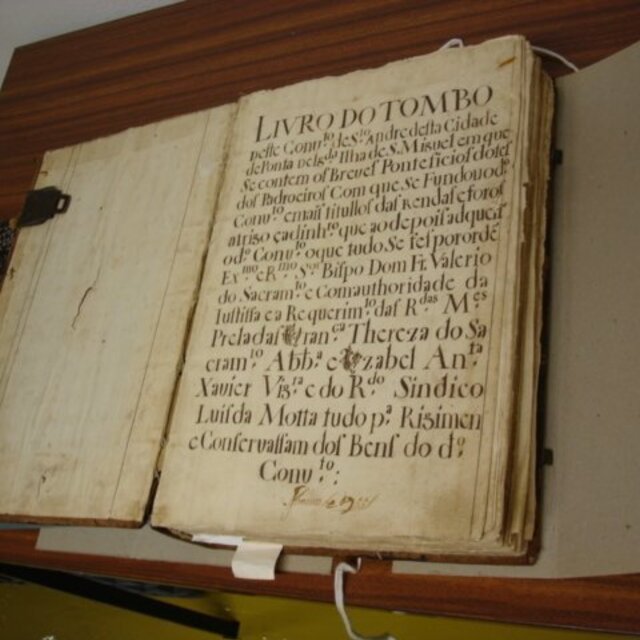 LIVRO DO TOMBO
neste Conu.to de S.to Andre desta Cidade
de Ponta del g.da Ilha de S. Miguel em que
Se contem os Breues Pontificios dotes
dos Padroeiros Com que Se Fundou o d.o
Conu.to e mais titullos das Rendas e foros
a triso ea dinh.ro que ao depois adquerí
o d.o Conu.to o que tudo Se fes por ordẽ
Ex.mo e R.mo S.or Bispo Dom Fr. Valerio
do Sacram.to e Com authoridade da
Iustissa e a Requerim.to das R.das M.es
Preladas Fran.ca Thereza do Sa
cram.to Abb.a e Izabel An.ta
Xavier Vig.ra e do R.do Sindico
Luis da Motta tudo p.a Rigimen
e Conseruassam dos Bens do d.o
Conu.to: